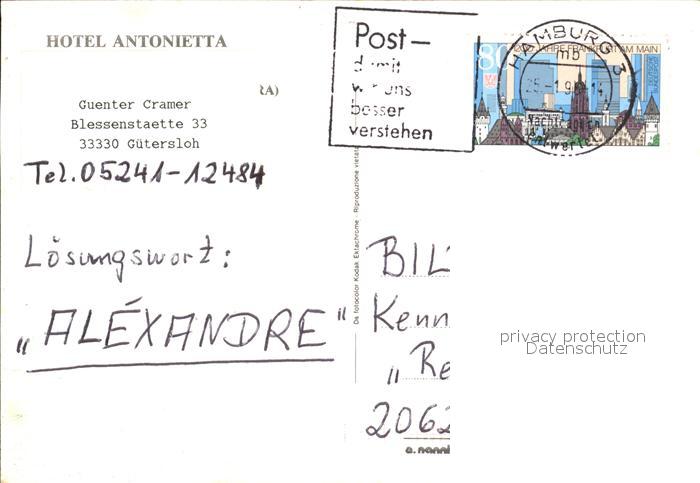 HOTEL ANTONIETTA
RA)
Guenter Cramer
Blessenstaette 33
33330 Gütersloh
Tel. 05241-12484
Lösungswort:
„ALÉXANDRE"
Post—
damit
wir uns
besser
verstehen
80
1200 JAHRE FRANKFURT AM MAIN
HAMBURG 3
mb
Da fotocolor Kodak Ektachrome - Riproduzione vietata
BIL
Kenn
„Re
2062
a. nanni
privacy protection
Datenschutz